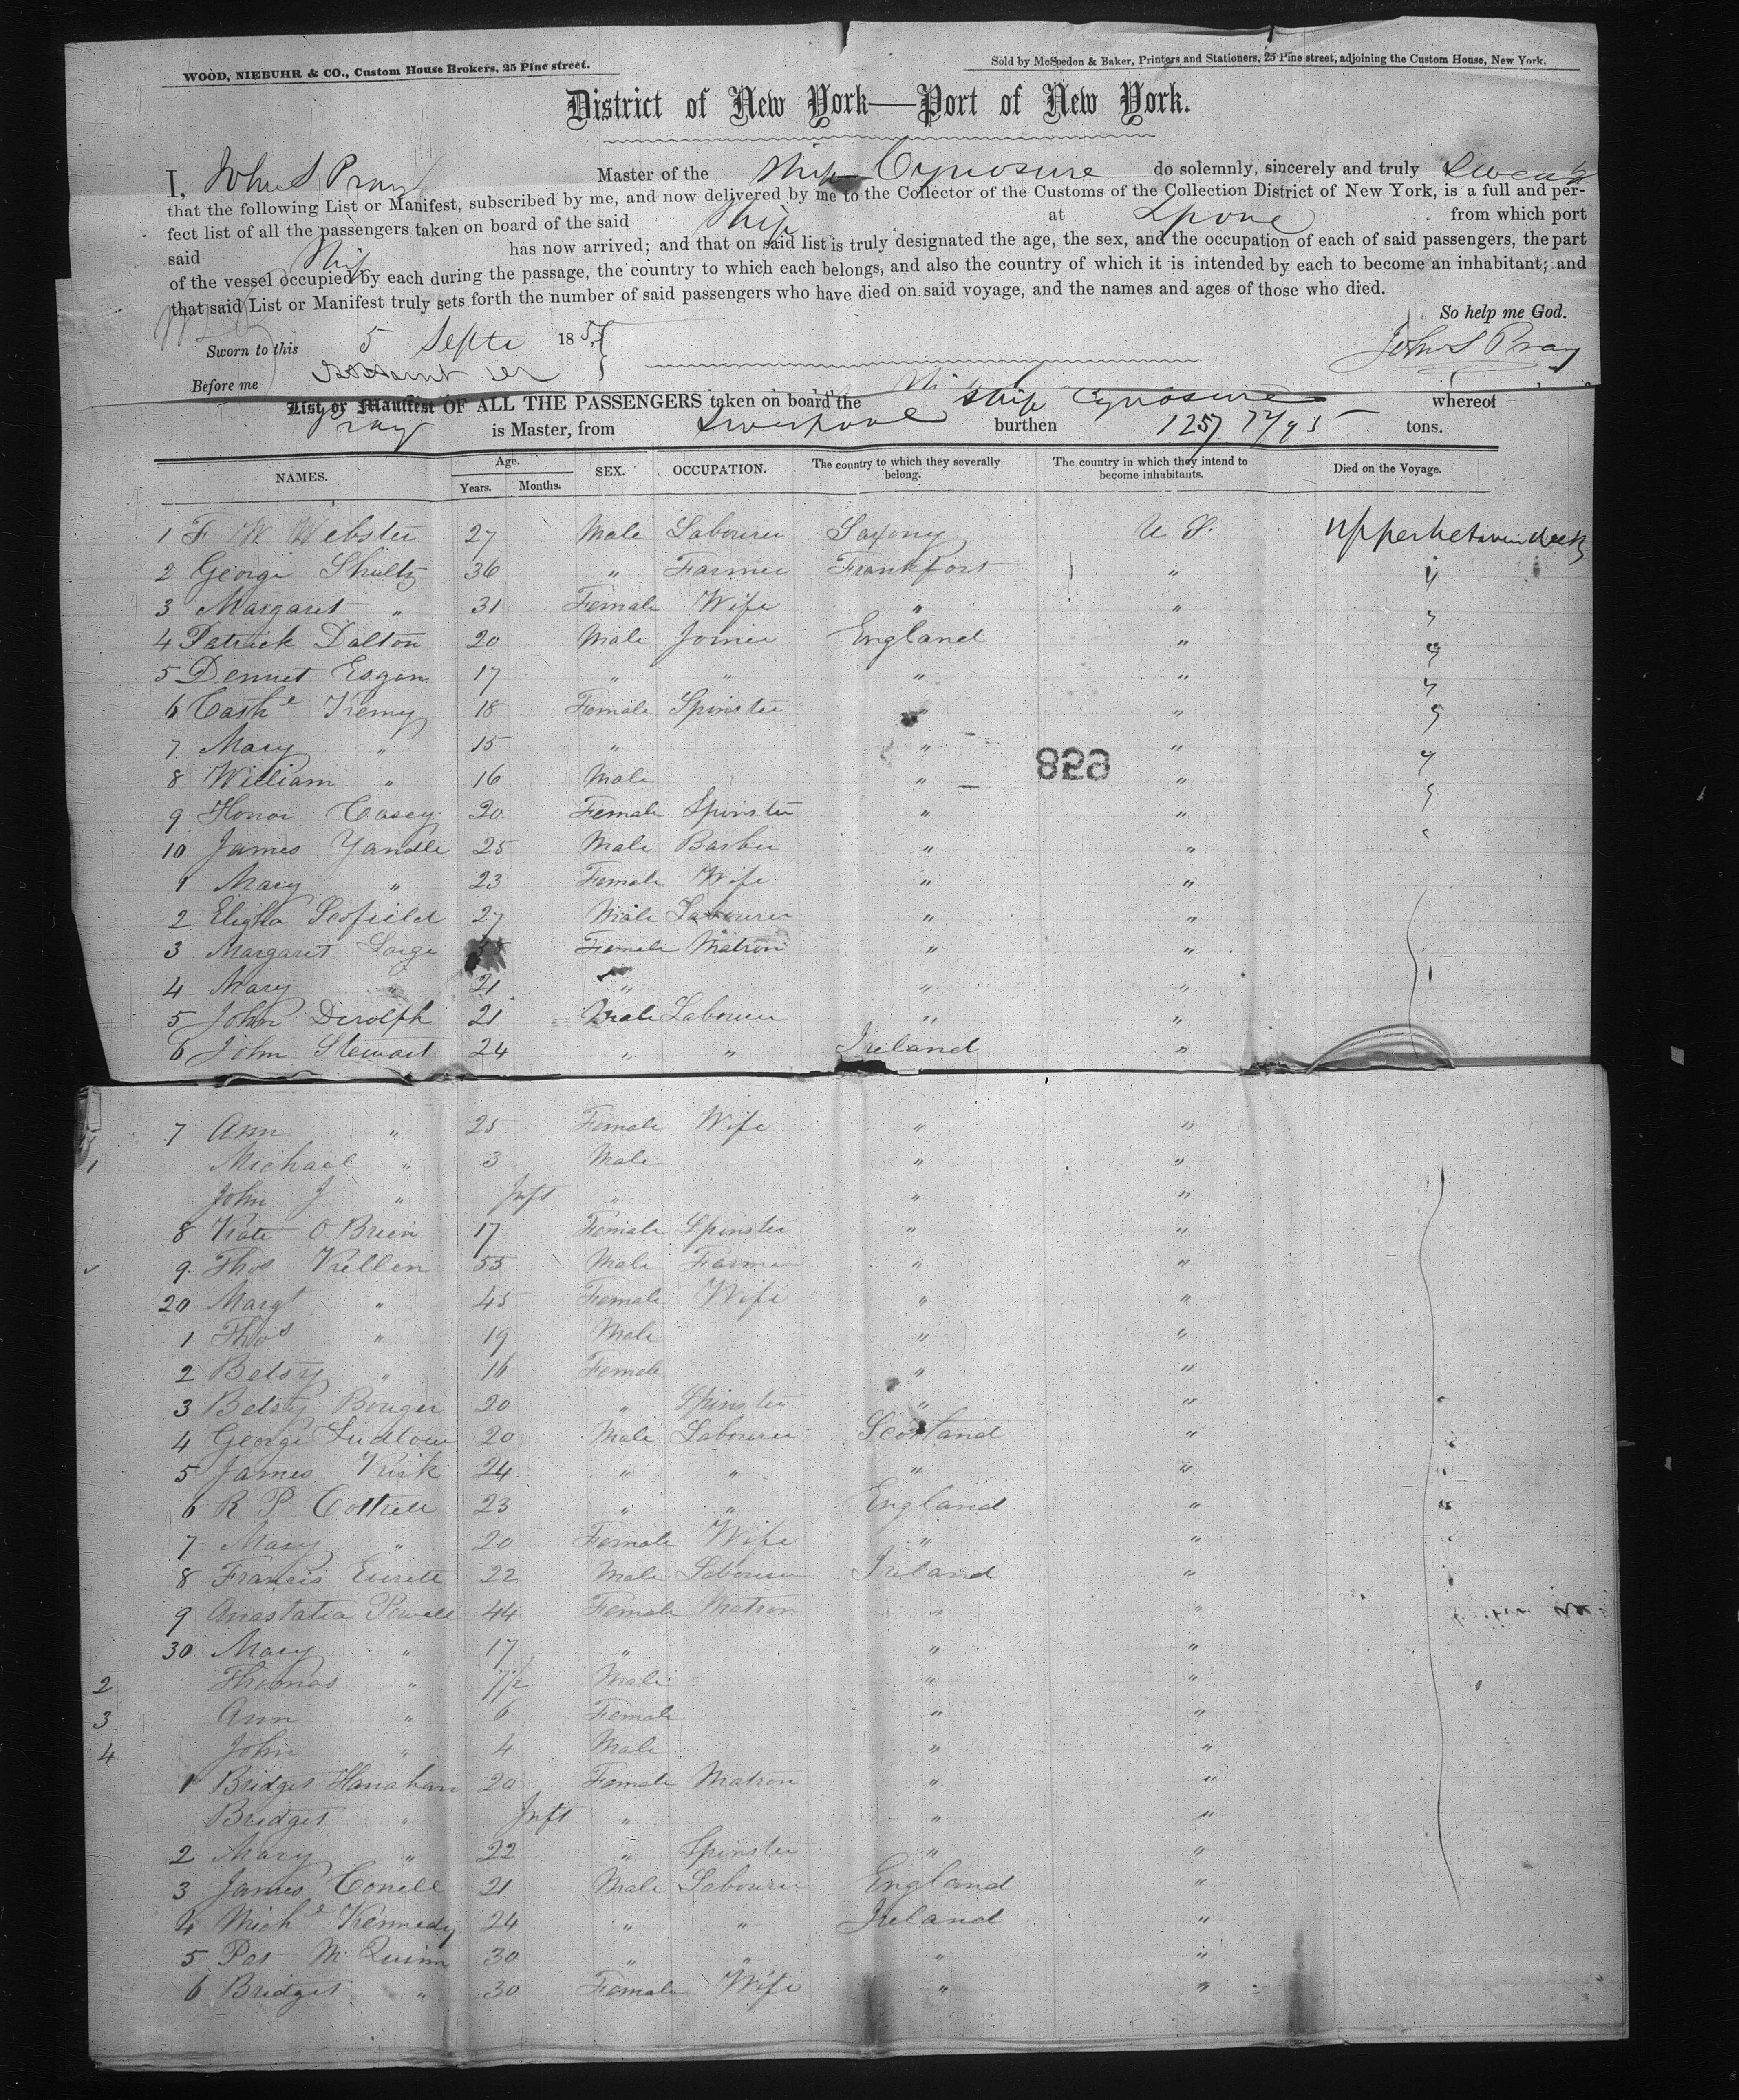 WOOD, NIEBUHR & CO., Custom House Brokers, 25 Pine street.
Sold by McSpedon & Baker, Printers and Stationers, 25 Pine street, adjoining the Custom House, New York.
District of New York—Port of New York.
I, John S Pray Master of the Ship Cynosure do solemnly, sincerely and truly Swear
that the following List or Manifest, subscribed by me, and now delivered by me to the Collector of the Customs of the Collection District of New York, is a full and per-
fect list of all the passengers taken on board of the said Ship at Lpool from which port
said Ship has now arrived; and that on said list is truly designated the age, the sex, and the occupation of each of said passengers, the part
of the vessel occupied by each during the passage, the country to which each belongs, and also the country of which it is intended by each to become an inhabitant; and
that said List or Manifest truly sets forth the number of said passengers who have died on said voyage, and the names and ages of those who died.
So help me God.
Sworn to this 5 Septe 185
John S Pray
Before me
List or Manifest OF ALL THE PASSENGERS taken on board the Ship Cynosure whereof
Pray is Master, from Liverpool burthen 1257 tons.
NAMES. Age. Years. Months. SEX. OCCUPATION. The country to which they severally belong. The country in which they intend to become inhabitants. Died on the Voyage.
1 F W Webster 27 Male Labourer Saxony U S. upper between decks
2 George Shultz 36 " Farmer Frankfort " "
3 Margaret " 31 Female Wife " "
4 Patrick Dalton 20 Male Joiner England "
5 Dennet Esgan 17 " " " "
6 Cathe Kenny 18 Female Spinster " "
7 Mary " 15 " " "
8 William " 16 Male " "
9 Honor Casey 20 Female Spinster " "
10 James Yandle 25 Male Barber " "
1 Mary " 23 Female Wife " "
2 Eligha Scofield 27 Male Labourer " "
3 Margaret Large Female Matron " "
4 Mary " 21 " " "
5 John Derolph 21 Male Labourer " "
6 John Stewart 24 " " Ireland "
7 Ann " 25 Female Wife " "
1 Michael " 3 Male " "
John J " Inft " " "
8 Kate O Brien 17 Female Spinster " "
9 Thos Killen 55 Male Farmer " "
20 Margt " 45 Female Wife " "
1 Thos " 19 Male " "
2 Betsy " 16 Female " "
3 Betsy Bouger 20 " Spinster " "
4 George Ludlow 20 Male Labourer Scotland "
5 James Kirk 24 " " " "
6 R P Cottrell 23 " " England "
7 Mary " 20 Female Wife " "
8 Francis Everett 22 Male Labourer Ireland "
9 Anastatia Powell 44 Female Matron " "
30 Mary " 17 " " "
2 Thomas " 7/2 Male " "
3 Ann " 6 Female " "
4 John " 4 Male " "
1 Bridget Hanahan 20 Female Matron " "
Bridget " Inft " " "
2 Mary " 22 " Spinster " "
3 James Conell 21 Male Labourer England "
4 Miche Kennedy 24 " " Ireland "
5 Pat McQuinn 30 " " " "
6 Bridget " 30 Female Wife " "